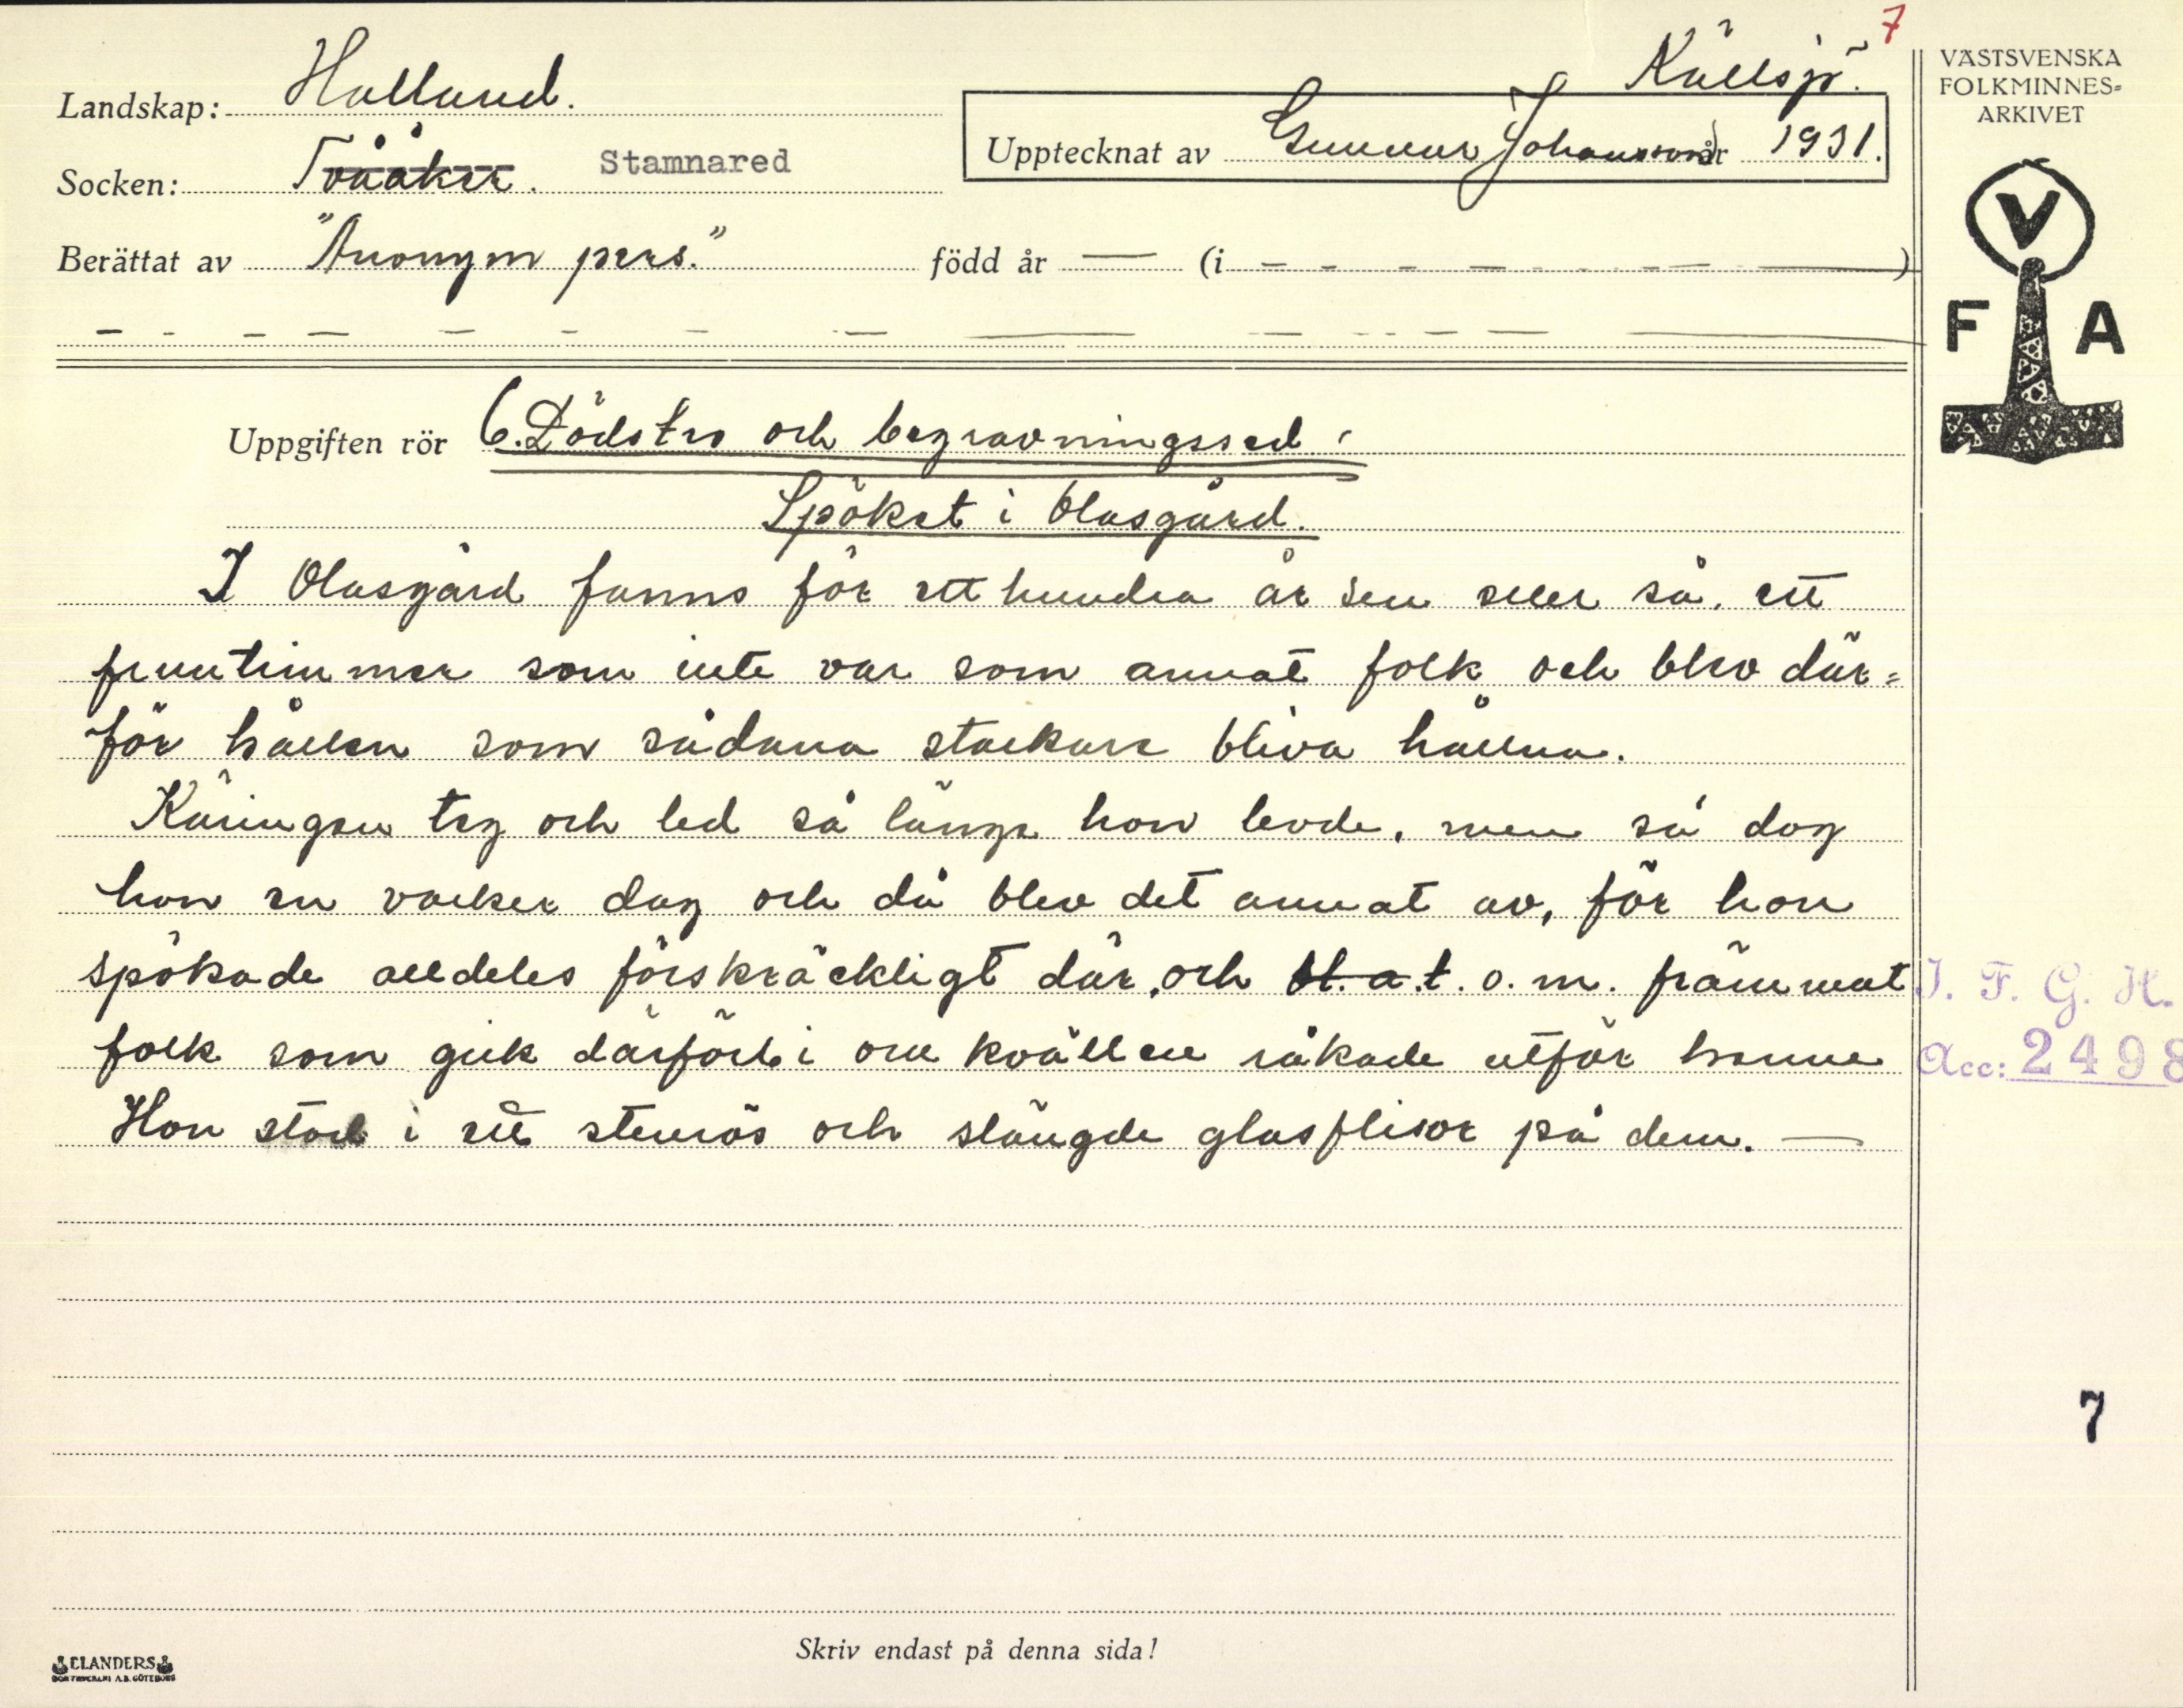 7
Källsjö.
Landskap: Halland.
Upptecknat av Gunnar Johansson år 1931.
Socken: Tvååker. Stamnared
Berättat av "Anonym pers." född år — (i - - - - - - - )
Uppgiften rör 6. Dödstro och begravningssed.
Spöket i Olasgård.
I Olasgård fanns för ett hundra år sen eller så, ett
fruntimmer som inte var som annat folk och blev där=
för hållen som sådana stackare bliva hållna.
Käringen teg och led så länge hon levde, men så dog
hon en vacker dag och då blev det annat av, för hon
spökade alldeles förskräckligt där, och bl. a. t. o. m. främmat
folk som gick därförbi om kvällen råkade utför henne
Hon stod i ett stenrös och slängde glasflisor på dem. —
Skriv endast på denna sida!
ELANDERS
BOKTRYCKERI A.B. GÖTEBORG
VÄSTSVENSKA
FOLKMINNES=
ARKIVET
V
F A
I. F. G. H.
Acc: 2498
7